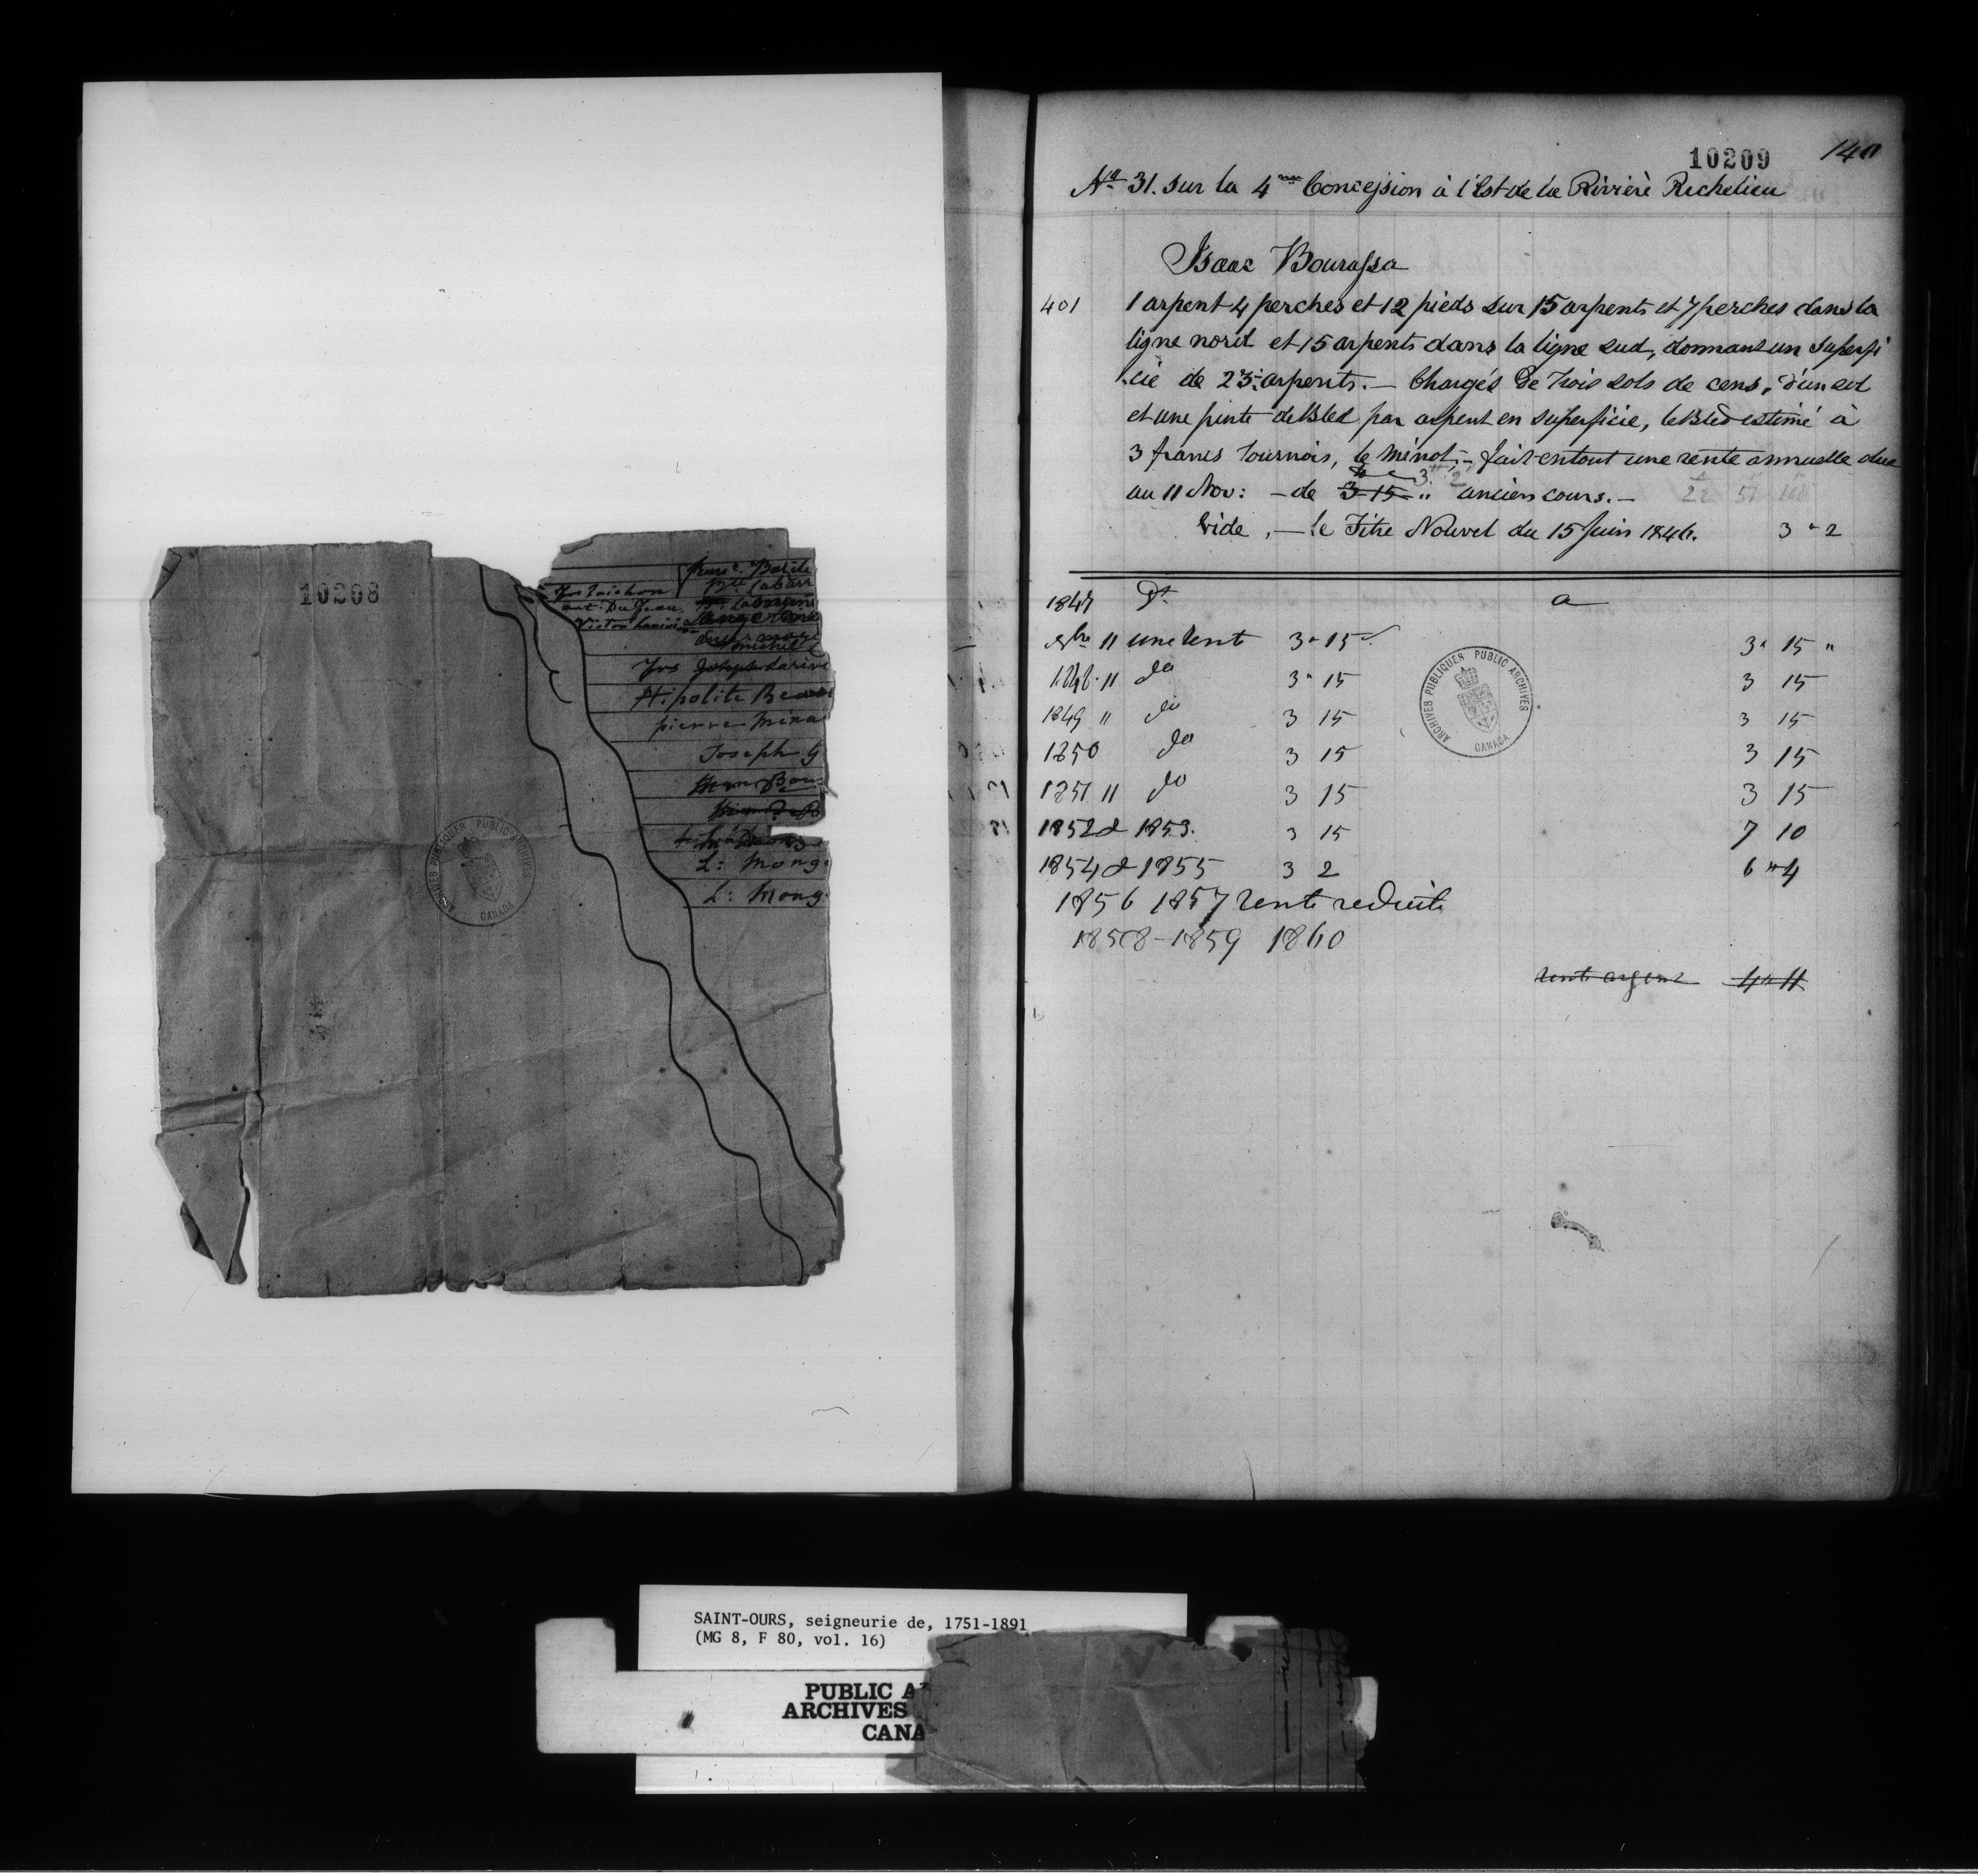 10208
franc. Batile
Victor
Frs Joseph Larivi
Hipolite Beau
pierre mina
Joseph G
L: Mong
L: Mong
ARCHIVES PUBLIQUES PUBLIC ARCHIVES
CANADA
10209 140
No. 31. sur la 4me Concession à l'Est de la Rivière Richelieu
Isaac Bourassa
401 1 arpent 4 perches et 12 pieds sur 15 arpents et 7 perches dans la
ligne nord et 15 arpents dans la ligne sud, donnant un superfi
-cie de 23 arpents. — Chargés de trois sols de cens, d'un sol
et une pinte de Bled par arpent en superficie, le Bled estimé à
3 francs tournois, le minot, — fait en tout une rente annuelle due
au 11 Nov: — de 3-15 " 3" 2 ancien cours. —
Vide, — le Titre Nouvel du 15 Juin 1846. 3 " 2
1847 Dt a
9bre 11 une rent 3 " 15 3 " 15 "
1848 " 11 do 3 " 15 3 15
1849 " do 3 15 3 15
1850 do 3 15 3 15
1851 11 do 3 15 3 15
1852 & 1853. 3 15 7 10
1854 & 1855 3 2 6 " 4
1856 1857 rente reduite
1858 - 1859 1860
rente argent 4 " 11
ARCHIVES PUBLIQUES PUBLIC ARCHIVES
CANADA
SAINT-OURS, seigneurie de, 1751-1891
(MG 8, F 80, vol. 16)
PUBLIC A
ARCHIVES
CANA